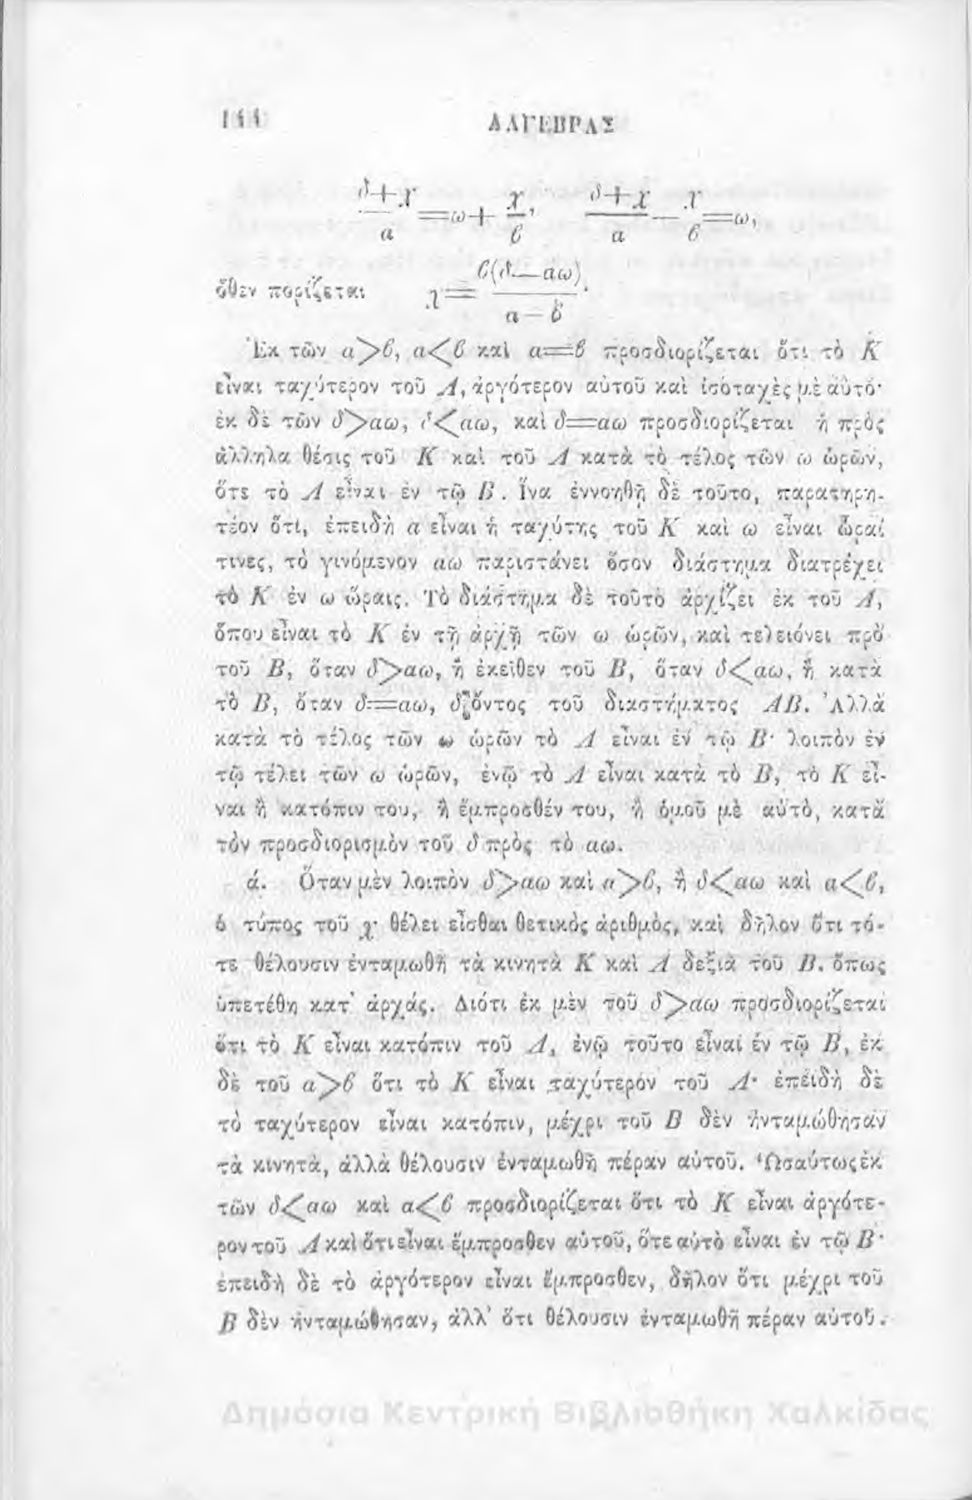 144 ΑΛΓΕΒΡΑΣ
(δ+χ)/α=ω+χ/β, (δ+χ)/α—χ/β=ω,
ὅθεν πορίζεται χ=β(δ—αω)/(α—β).
Ἐκ τῶν α>β, α<β καὶ α=β προσδιορίζεται ὅτι τὸ Κ
εἶναι ταχύτερον τοῦ Λ, ἀργότερον αὐτοῦ καὶ ἰσοταχὲς μὲ αὐτό·
ἐκ δὲ τῶν δ>αω, δ<αω, καὶ δ=αω προσδιορίζεται ἡ πρὸς
ἄλληλα θέσις τοῦ Κ καὶ τοῦ Λ κατὰ τὸ τέλος τῶν ω ὡρῶν,
ὅτε τὸ Λ εἶναι ἐν τῷ Β. Ἵνα ἐννοηθῇ δὲ τοῦτο, παρατηρη-
τέον ὅτι, ἐπειδὴ α εἶναι ἡ ταχύτης τοῦ Κ καὶ ω εἶναι ὧραί
τινες, τὸ γινόμενον αω παριστάνει ὅσον διάστημα διατρέχει
τὸ Κ ἐν ω ὥραις. Τὸ διάστημα δὲ τοῦτο ἀρχίζει ἐκ τοῦ Α,
ὅπου εἶναι τὸ Κ ἐν τῇ ἀρχῇ τῶν ω ὡρῶν, καὶ τελειόνει πρὸ
τοῦ Β, ὅταν δ>αω, ἢ ἐκεῖθεν τοῦ Β, ὅταν δ<αω, ἢ κατὰ
τὸ Β, ὅταν δ=αω, δ ὄντος τοῦ διαστήματος ΑΒ. Ἀλλὰ
κατὰ τὸ τέλος τῶν ω ὡρῶν τὸ Λ εἶναι ἐν τῷ Β· λοιπὸν ἐν
τῷ τέλει τῶν ω ὡρῶν, ἐνῷ τὸ Λ εἶναι κατὰ τὸ Β, τὸ Κ εἶ-
ναι ἢ κατόπιν του, ἢ ἔμπροσθέν του, ἢ ὁμοῦ μὲ αὐτὸ, κατὰ
τὸν προσδιορισμὸν τοῦ δ πρὸς τὸ αω.
ά. Ὅταν μὲν λοιπὸν δ>αω καὶ α>β, ἢ δ<αω καὶ α<β,
ὁ τύπος τοῦ χ θέλει εἶσθαι θετικὸς ἀριθμὸς, καὶ δῆλον ὅτι τό-
τε θέλουσιν ἐνταμωθῆ τὰ κινητὰ Κ καὶ Λ δεξιὰ τοῦ Β, ὅπως
ὑπετέθη κατ' ἀρχάς. Διότι ἐκ μὲν τοῦ δ>αω προσδιορίζεται
ὅτι τὸ Κ εἶναι κατόπιν τοῦ Λ, ἐνῷ τοῦτο εἶναι ἐν τῷ Β, ἐκ
δὲ τοῦ α>β ὅτι τὸ Κ εἶναι ταχύτερον τοῦ Λ· ἐπειδὴ δὲ
τὸ ταχύτερον εἶναι κατόπιν, μέχρι τοῦ Β δὲν ἠνταμώθησαν
τὰ κινητὰ, ἀλλὰ θέλουσιν ἐνταμωθῆ πέραν αὐτοῦ. Ὡσαύτως ἐκ
τῶν δ<αω καὶ α<β προσδιορίζεται ὅτι τὸ Κ εἶναι ἀργότε-
ρον τοῦ Λ καὶ ὅτι εἶναι ἔμπροσθεν αὐτοῦ, ὅτε αὐτὸ εἶναι ἐν τῷ Β·
ἐπειδὴ δὲ τὸ ἀργότερον εἶναι ἔμπροσθεν, δῆλον ὅτι μέχρι τοῦ
Β δὲν ἠνταμώθησαν, ἀλλ' ὅτι θέλουσιν ἐνταμωθῆ πέραν αὐτοῦ.
Δημόσια Κεντρική Βιβλιοθήκη Χαλκίδας